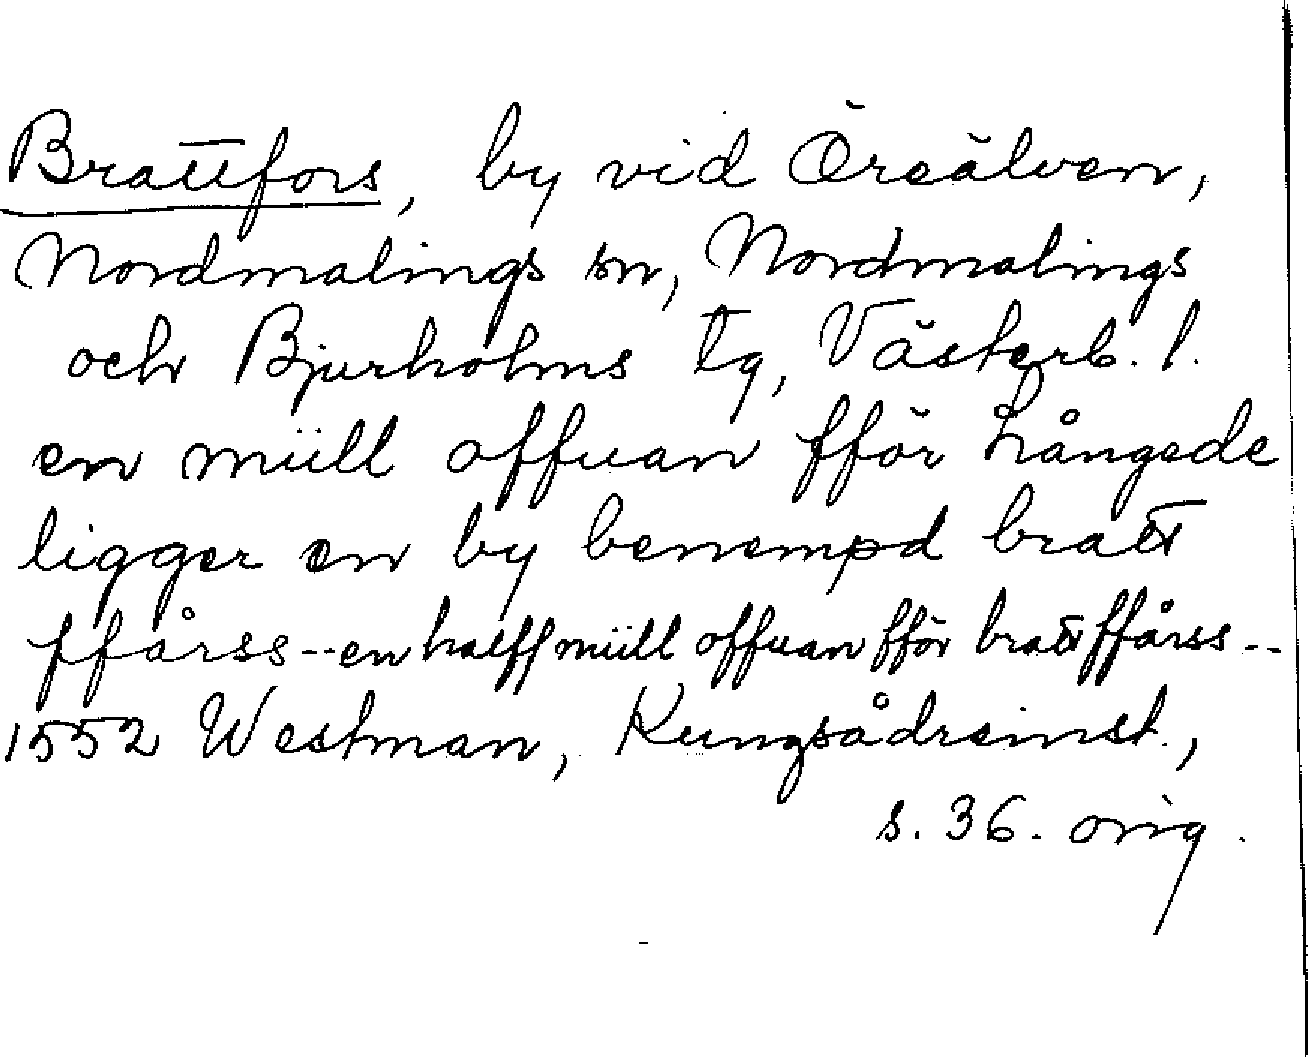 Brattfors, by vid Öreälven,
Nordmalings sn, Nordmalings
och Bjurholms tg, Västerb. l.
en miill offuan fför Långede
ligger en by benempd bratt
ffårss -- en halff miill offuan fför bratt ffårss --
1552 Westman, Kungsådreinst.,
s. 36. orig.